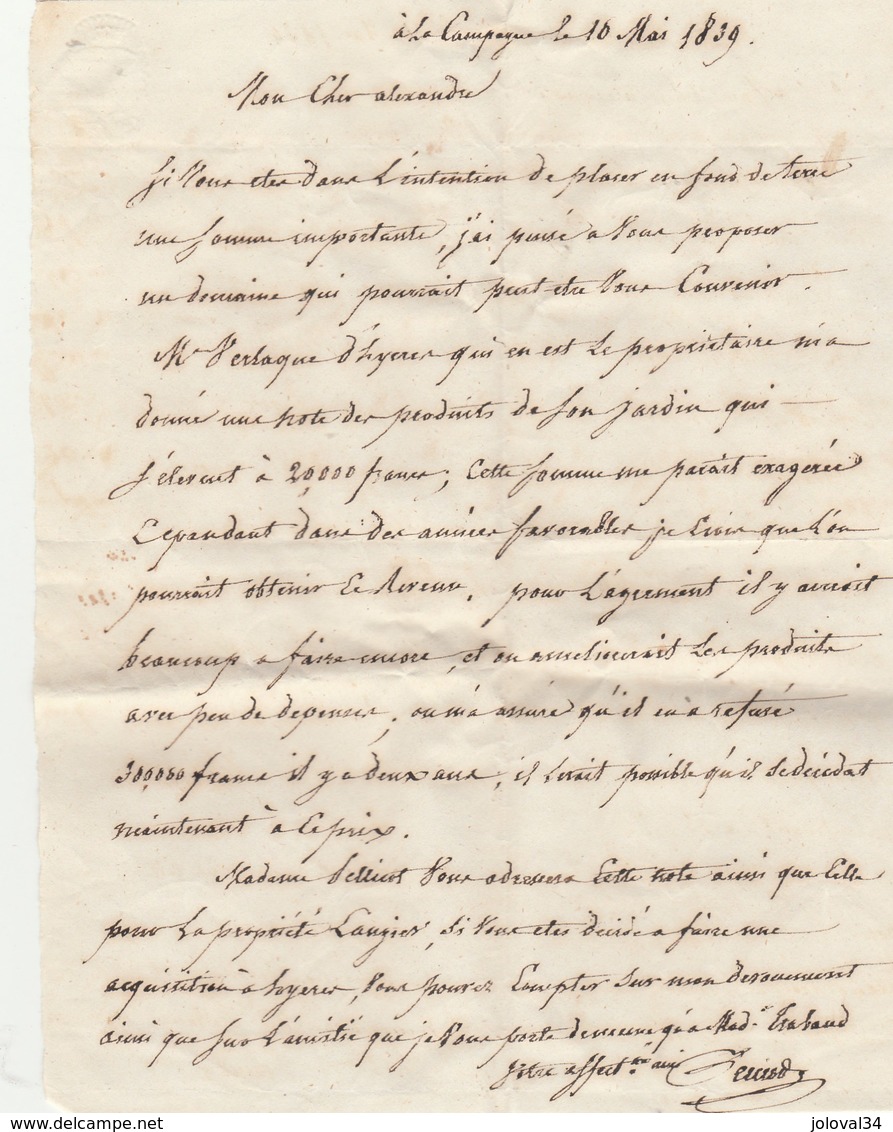 à La Campagne le 10 Mai 1839.
Mon Cher alexandre
Si Vous etes dans L'intention de placer en fond de terre
une somme importante, j'ai pensé a Vous proposer
un domaine qui pourrait peut-etre Vous Convenir.
Mr Verlaque d'hyeres qui en est Le propriétaire m'a
donné une note des produits de son jardin qui —
s'élevent à 20,000 francs; Cette somme me parait exagerée
Cepandant dans des années favorables je crois que L'on
pourrait obtenir Ce Revenu. pour L'agrement il y auroit
beaucoup a faire encore, et on ameliorerait Les produits
avec peu de depenses, on m'a assuré qu'il en a refusé
300,000 francs il y a deux ans, il Serait possible qu'il Se décidat
maintenant à Ce prix.
Madame Pellicot Vous adressera Cette note ainsi que Celle
pour La propriété Laugier, Si Vous etes décidé a faire une
acquisition à hyeres, Vous pouvez Compter Sur mon devouement
ainsi que Sur L'amitié que je Vous porte de meme qu'a Mad.e
Votre affect.né ami
joloval34